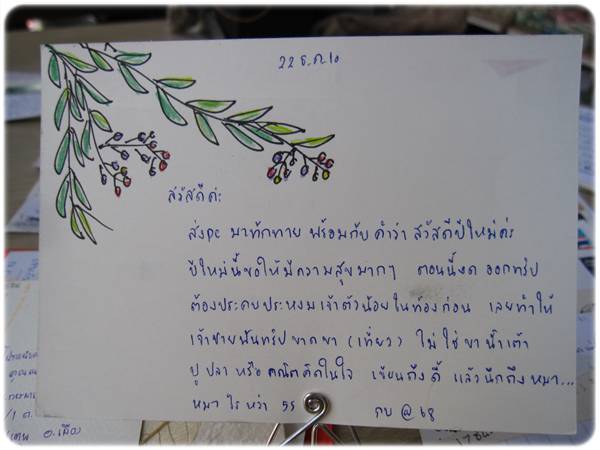 22 ธ.ค. 10
สวัสดีค่ะ
ส่งpc มาทักทาย พร้อมกับ คำว่า สวัสดีปีใหม่ค่ะ
ปีใหม่นี้ขอให้มีความสุขมากๆ ตอนนี้งด ออกทริป
ต้องประคบประหงมเจ้าตัวน้อยในท้องก่อน เลยทำให้
เจ้าชายพันทริปขาดขา (เที่ยว) ไม่ใช่ขาน้ำเต้า
ปู ปลา หรือ คณิตคิดในใจ เขียนถึงดี้ แล้วนึกถึงหมา...
หมา ไร หว่า 55
กบ @ 68